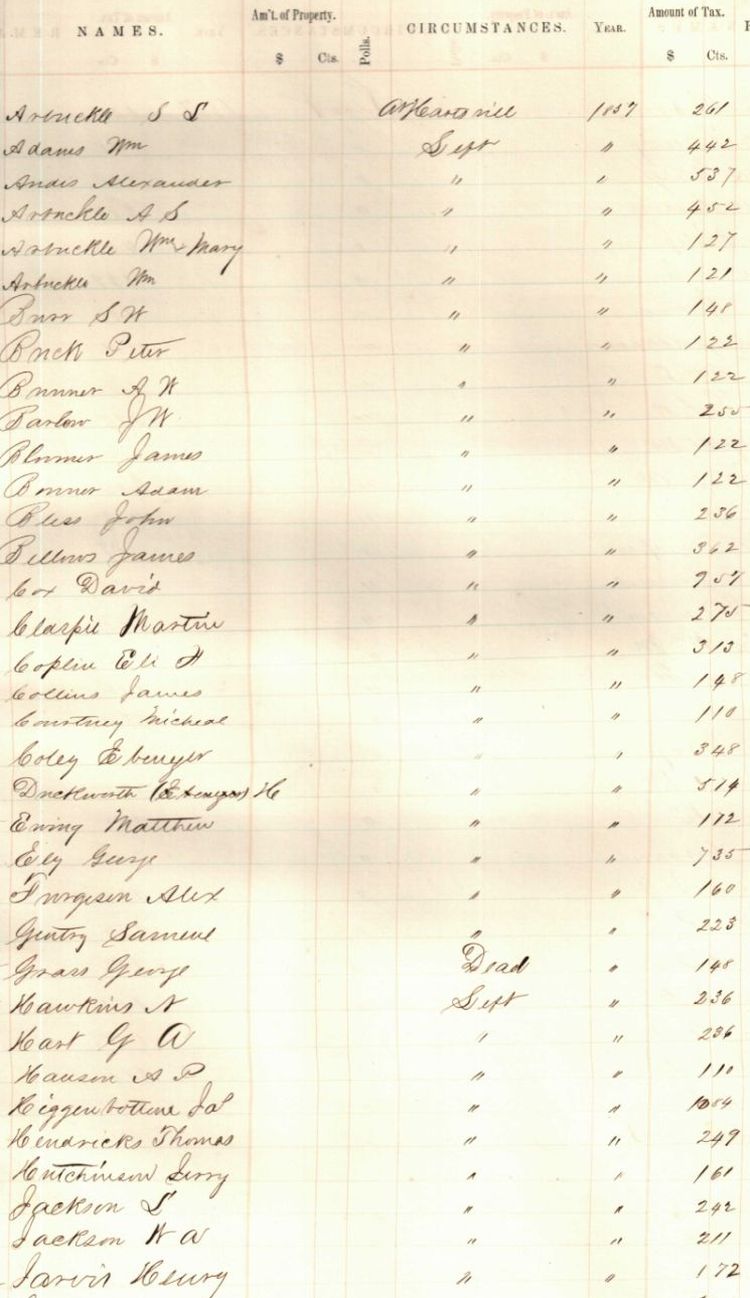 NAMES. Am't. of Property. Polls. CIRCUMSTANCES. YEAR. Amount of Tax.
$ Cts. $ Cts.
Arbuckle S S At Hartsvill 1857 261
Adams Wm Left " 442
Andis Alexander " " 537
Arbuckle A S " " 452
Arbuckle Wm & Mary " " 127
Arbuckle Wm " " 121
Burr S W " " 148
Brick Peter " " 122
Brunner A W " " 122
Barlow J W " " 255
Blumer James " " 122
Bonner Adam " " 122
Bless John " " 236
Bellows James " " 362
Cox David " " 957
Claspil Martin " " 275
Coplin Eli F " " 313
Collins James " " 148
Courtney Micheal " " 110
Coley Ebenezer " " 348
Duckworth (Ebenezer) H " " 514
Ewing Matthew " " 172
Ely George " " 735
Furgeson Alex " " 160
Gentry Samuel " " 223
Grass George Dead " 148
Hawkins N Left " 236
Hart G A " " 236
Hanson A P " " 110
Higgenbottom Jas " " 1084
Hendricks Thomas " " 249
Hutchinson Jerry " " 161
Jackson S " " 242
Jackson W A " " 211
Jarvis Henry " " 172